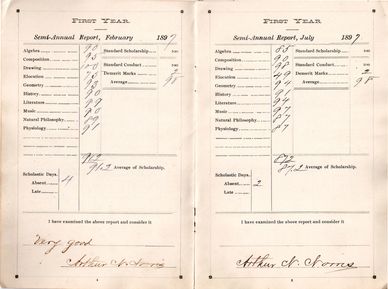 FIRST YEAR.
Semi-Annual Report, February 1897
Algebra 90
Composition 95
Drawing
Elocution
Geometry
History 90
Literature
Music
Natural Philosophy
Physiology
Standard Scholarship
Standard Conduct
Demerit Marks 2
Average 98
912
91.2 Average of Scholarship.
Scholastic Days.
Absent 4
Late
I have examined the above report and consider it
Very good
Arthur N. Norris
FIRST YEAR.
Semi-Annual Report, July 1897
Algebra 85
Composition 90
Drawing
Elocution
Geometry
History 91
Literature 94
Music 97
Natural Philosophy 87
Physiology 87
Standard Scholarship
Standard Conduct
Demerit Marks 2
Average 98
872
87.2 Average of Scholarship.
Scholastic Days.
Absent 2
Late
I have examined the above report and consider it
Arthur N. Norris